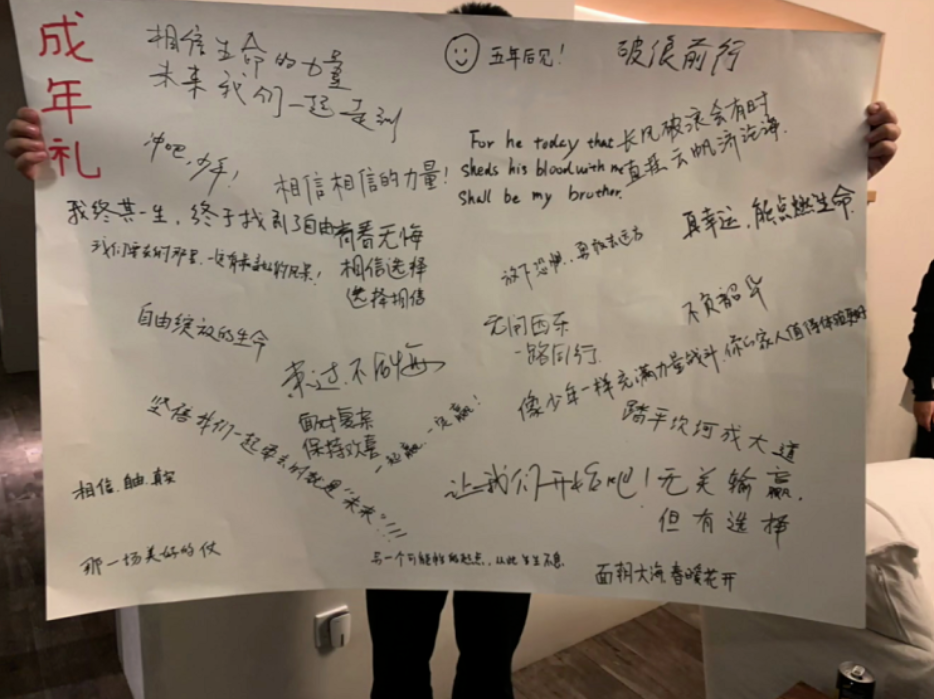 成年礼
相信生命的力量
未来我们一起走到
五年后见!
破浪前行
冲吧,少年!
相信相信的力量!
For he today that
sheds his blood with me
Shall be my brother.
长风破浪会有时
直挂云帆济沧海.
我终其一生,终于找到了自由
有春无悔
相信选择
选择相信
真幸运,能点燃生命.
放下恐惧,勇敢去远方
自由绽放的生命
无问西东
一路同行.
不负韶华
来过,不后悔
像少年一样充满力量战斗,你的家人值得体验更好
面对复杂
保持欢喜
一起赢,一定赢!
踏平坎坷成大道
坚信我们一起要去的就是“未来”!!!
相信.自由.真实
让我们开始吧!
无关输赢,
但有选择
那一场美好的仗
从此生生不息
面朝大海,春暖花开